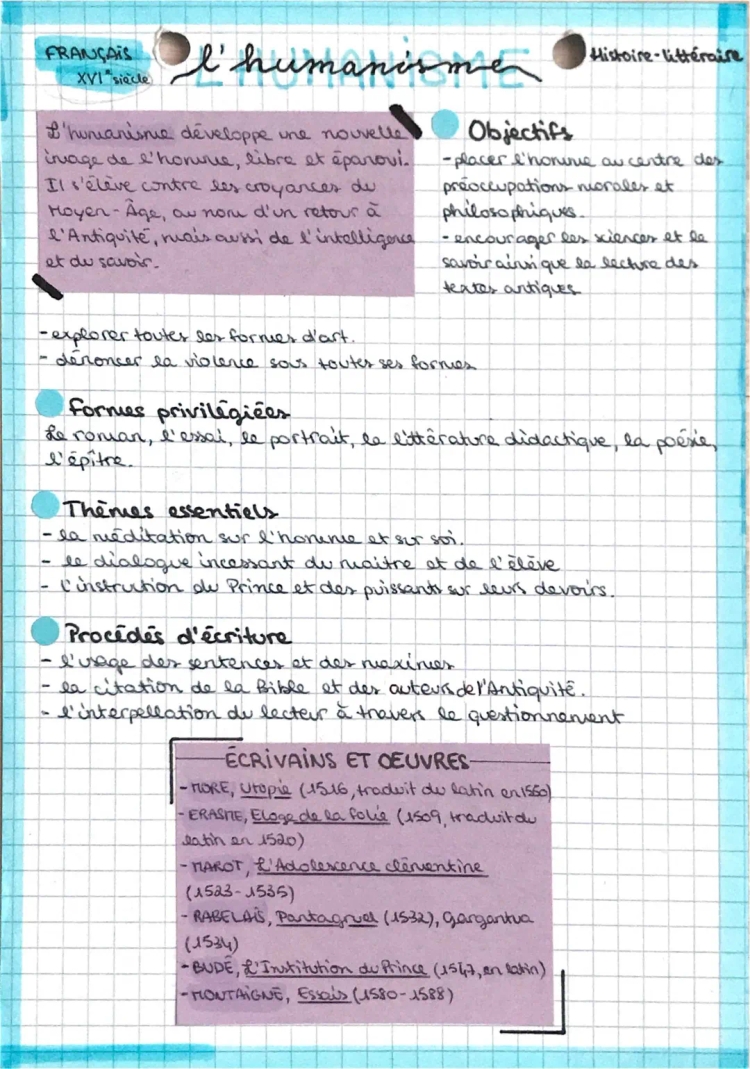 FRANÇAIS
XVIe siècle
L'HUMANISME
l'humanisme
Histoire-littéraire
L'humanisme développe une nouvelle
image de l'homme, libre et épanoui.
Il s'élève contre les croyances du
Moyen-Âge, au nom d'un retour à
l'Antiquité, mais aussi de l'intelligence
et du savoir.
Objectifs
-placer l'homme au centre des
préoccupations morales et
philosophiques.
-encourager les sciences et le
savoir ainsi que la lecture des
textes antiques
-explorer toutes les formes d'art.
- dénoncer la violence sous toutes ses formes
Formes privilégiées
Le roman, l'essai, le portrait, la littérature didactique, la poésie,
l'épître.
Thèmes essentiels
- la méditation sur l'homme et sur soi.
- le dialogue incessant du maitre et de l'élève
- l'instruction du Prince et des puissants sur leurs devoirs.
Procédés d'écriture
- l'usage des sentences et des maximes
- la citation de la Bible et des auteurs de l'Antiquité.
- l'interpellation du lecteur à travers le questionnement
ÉCRIVAINS ET OEUVRES
-MORE, Utopie (1516, traduit du latin en 1550)
-ERASME, Eloge de la folie (1509, traduit du
latin en 1520)
-MAROT, L'Adolescence clémentine
(1523-1535)
-RABELAIS, Pantagruel (1532), Gargantua
(1534)
-BUDÉ, L'Institution du Prince (1547, en latin)
-MONTAIGNE, Essais (1580-1588)